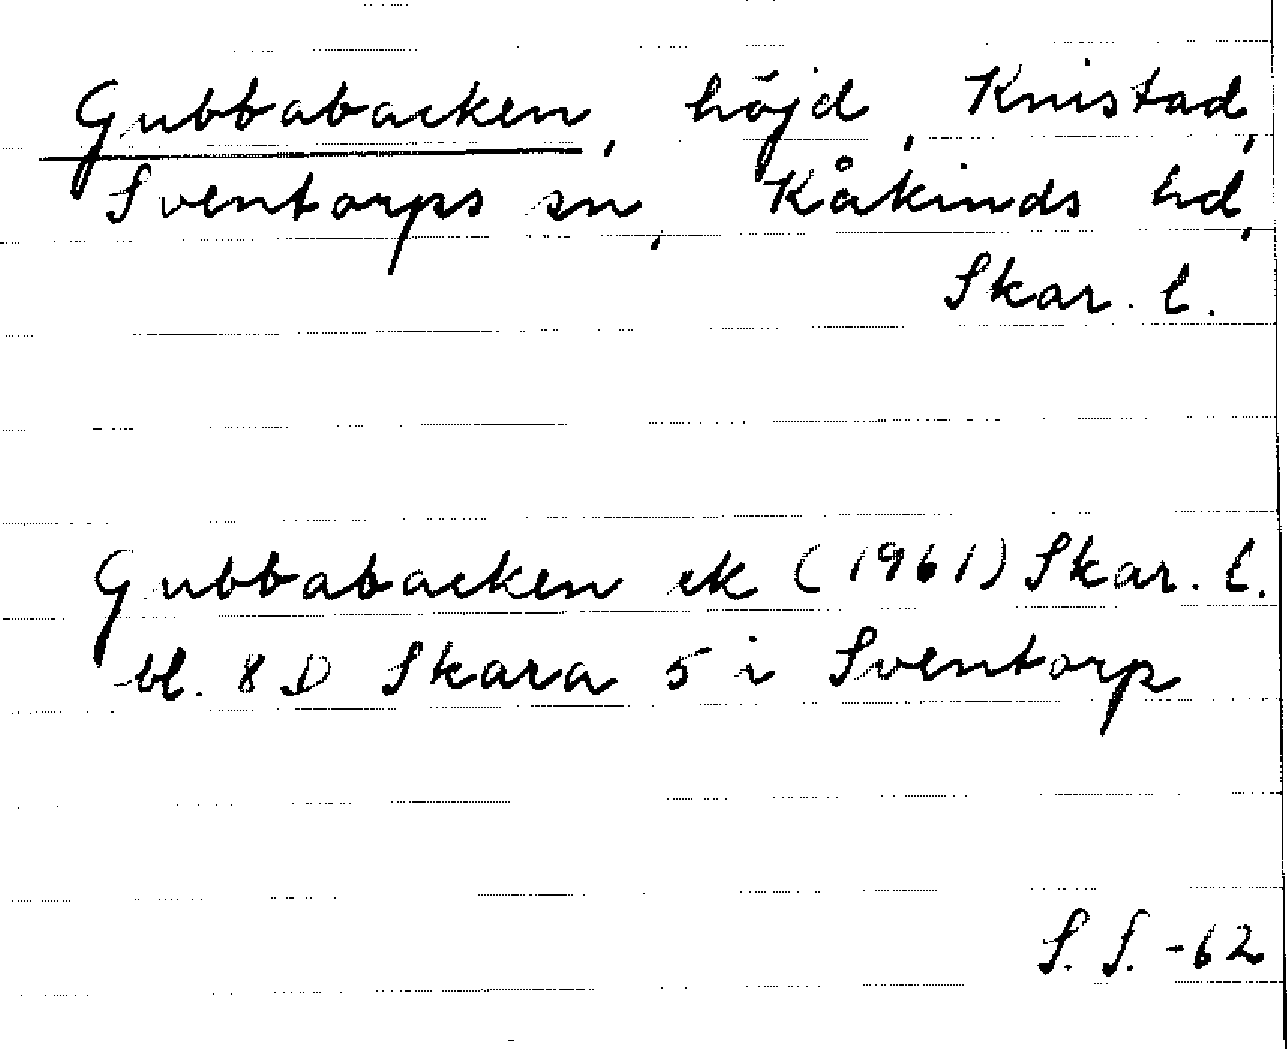 Gubbabacken, höjd, Knistad,
Sventorps sn, Kåkinds hd,
Skar. l.
Gubbabacken ek (1961) Skar. l.
bl. 8 D Skara 5 i Sventorp
S. S. -62